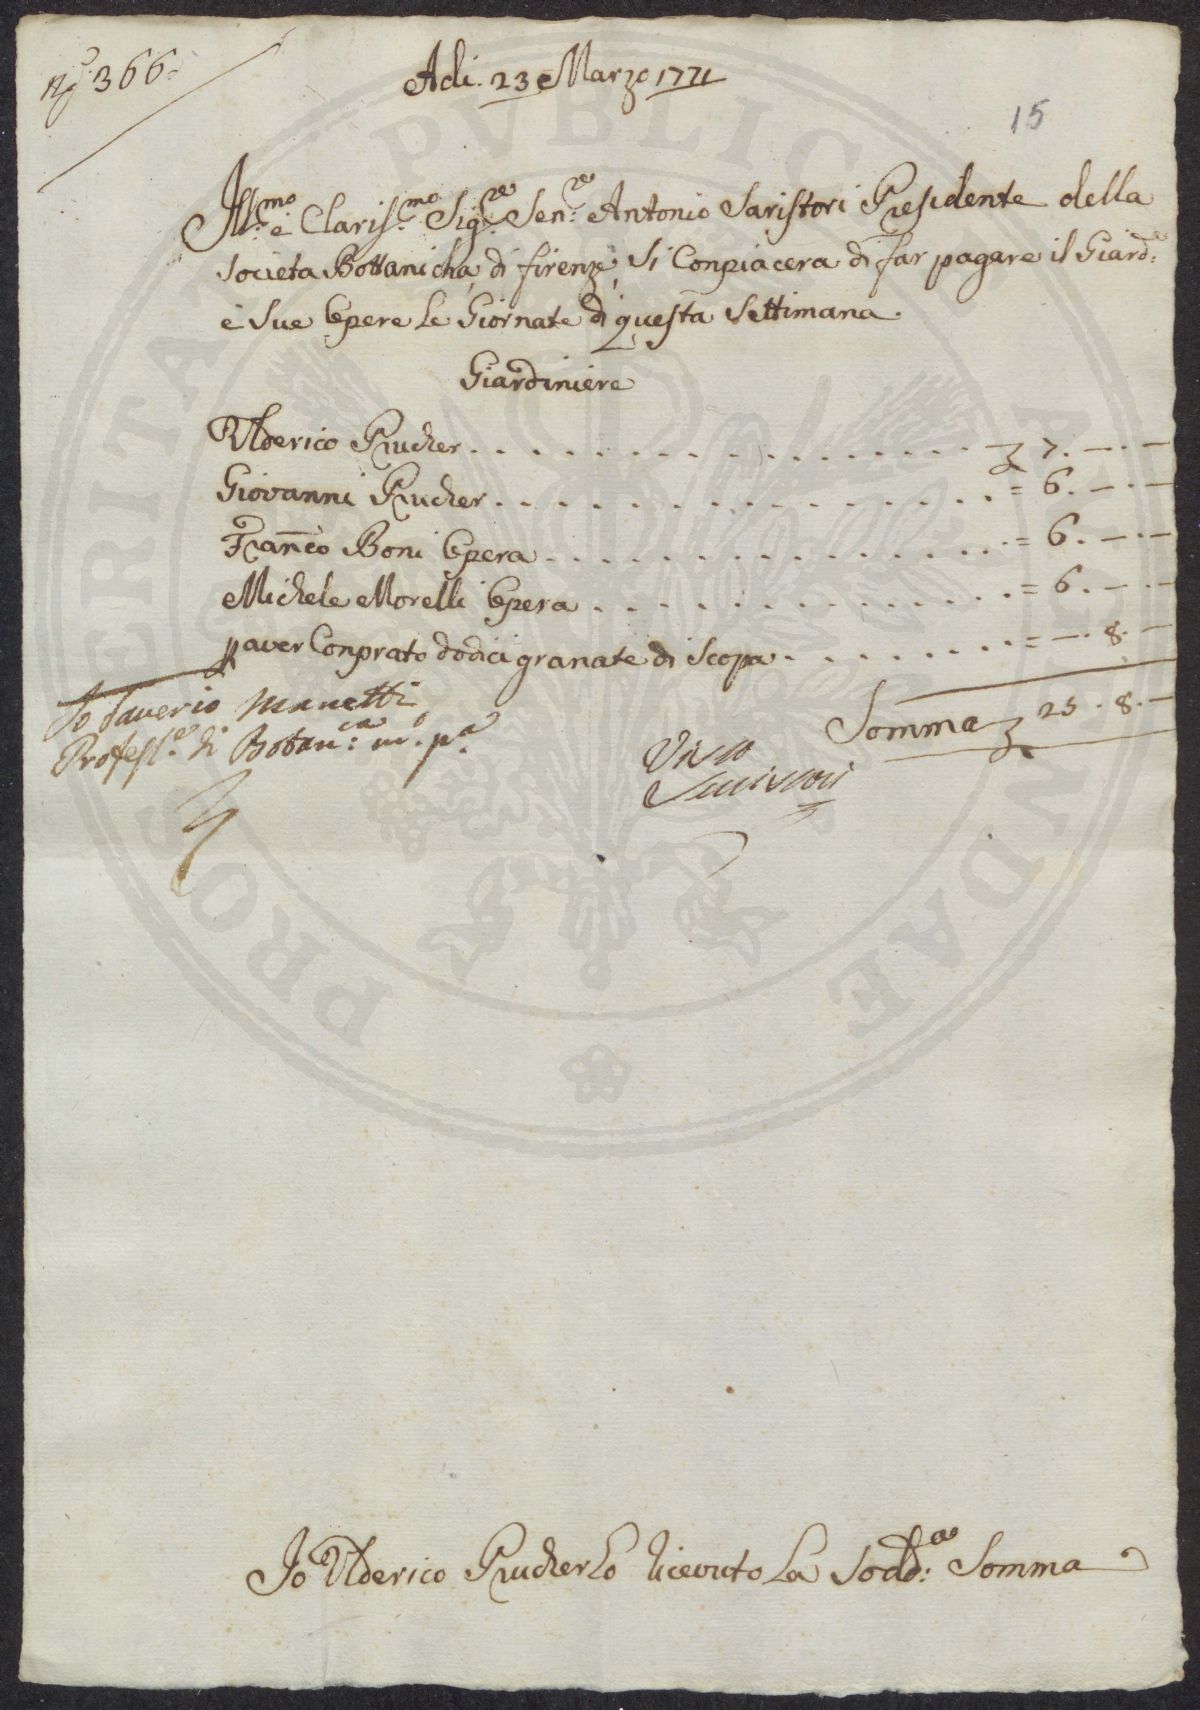 No 366=
Adi. 23 Marzo 1771
15
Ill:mo e Claris:mo Sig:re Sen:re Antonio Saristori Presidente della
Societa Bottanicha di firenze, Si Conpiacera di far pagare il Giard:e
e Sue Opere Le Giornate di questa Settimana.
Giardiniere
Ulderico Prucher . . . . . . . . . . . . . . . . . 7. — . —
Giovanni Prucher . . . . . . . . . . . . . . . . . = 6. — . —
Franco Boni Opera . . . . . . . . . . . . . . . . = 6. — . —
Michele Morelli Opera . . . . . . . . . . . . . . = 6. — . —
p aver Conprato dodici granate di Scopa . . . . . . . . = — . 8. —
Somma 25. 8. —
Io Saverio Manetti
Profess:e di Botan:ca m. p.a
Visto
Io Ulderico Prucher ho Ricevuto La Sodd:a Somma
PROSPERITATI PVBLICAE AVGENDAE